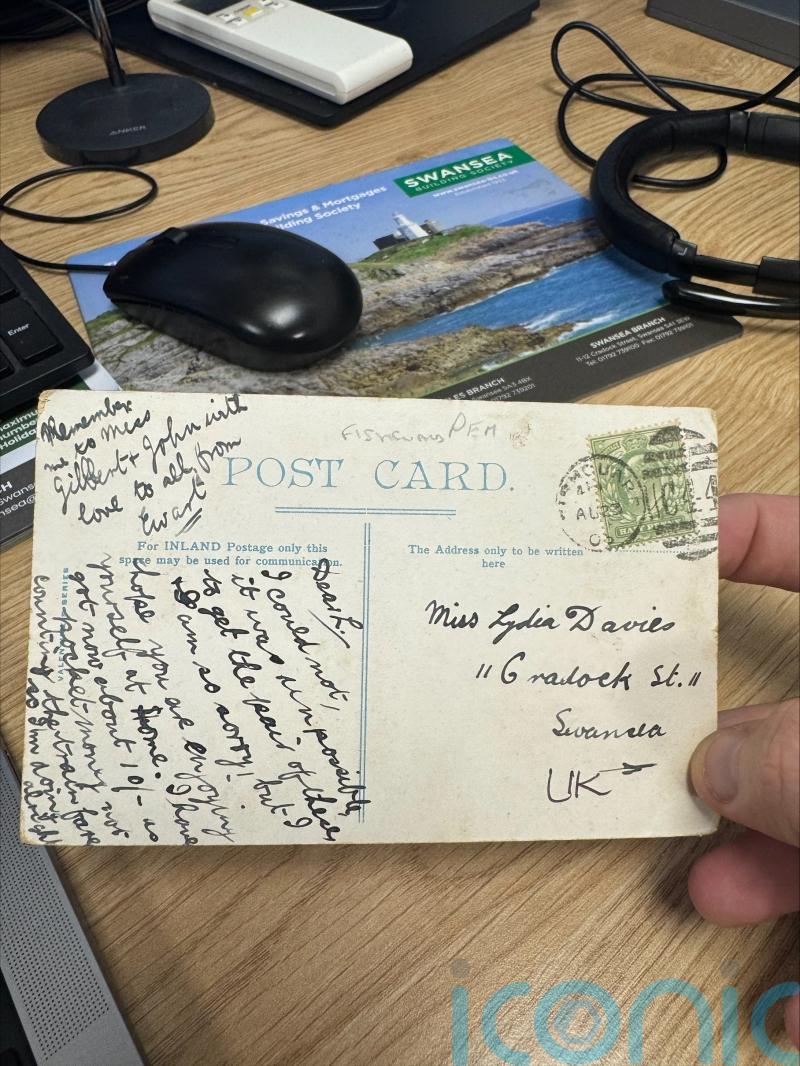 ANKER
SWANSEA
BUILDING SOCIETY
www.swansea-bs.co.uk
Established 1923
Savings & Mortgages
Building Society
Enter
SWANSEA BRANCH
11-12 Cradock Street, Swansea SA1 3EW
Tel: 01792 739100 Fax: 01792
LES BRANCH
Swansea SA3 4BX
01792 739201
Remember
me to Miss
Gilbert & John with
love to all from
Ewart
FISHGUARD PEM
POST CARD.
FISHGUARD
AU 23
03
For INLAND Postage only this
space may be used for communication.
The Address only to be written
here
VALENTINES SERIES
Dear L.
I could not,
it was impossible,
to get the pair of these.
I am so sorry! but I
hope you are enjoying
yourself at home. I have
got now about 10/- as
pocket money not
counting the train fare
so I'm doing
alright
Miss Lydia Davies
11 Cradock St.
Swansea
UK
iconic